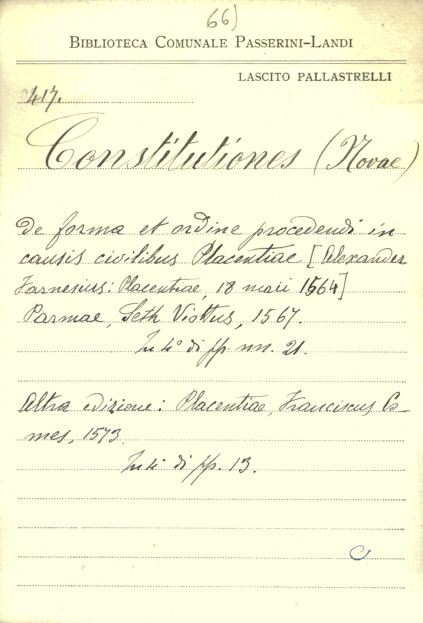 66)
BIBLIOTECA COMUNALE PASSERINI-LANDI
LASCITO PALLASTRELLI
417.
Constitutiones (Novae)
De forma et ordine procedendi in
causis civilibus Placentiae [Alexander
Farnesius: Placentiae, 18 maii 1564]
Parmae, Seth Viottus, 1567.
In 4° di pp. nn. 21.
Altra edizione: Placentiae, Franciscus Co-
mes, 1573.
In 4° di pp. 13.